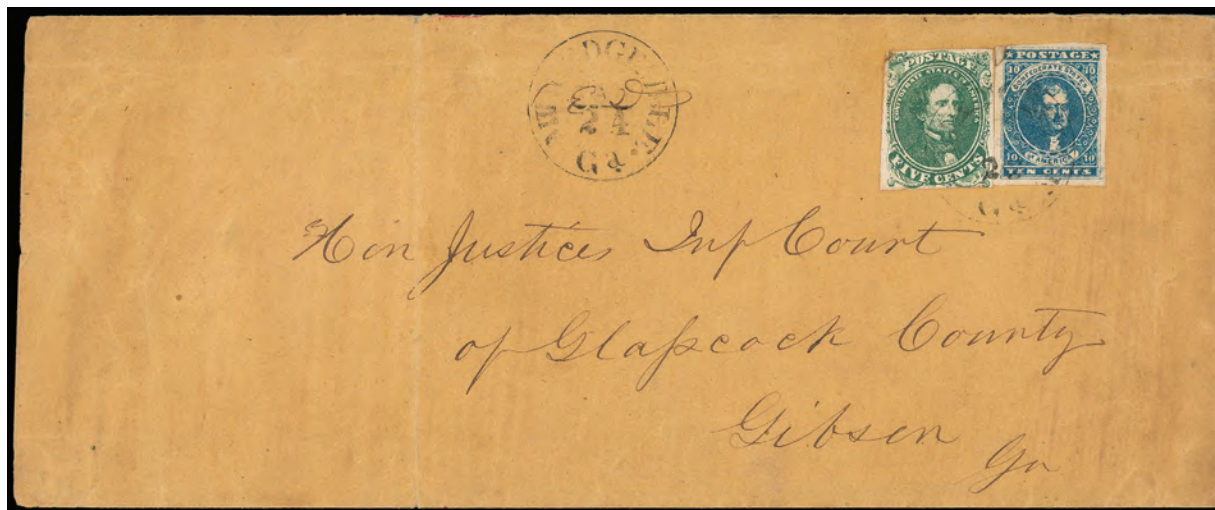 24
Ga.
POSTAGE
CONFEDERATE STATES OF AMERICA
FIVE CENTS
POSTAGE
10 10
CONFEDERATE STATES
OF AMERICA
10 10
TEN CENTS
Ga
Hon Justices Inf Court
of Glasscock County
Gibson
Ga